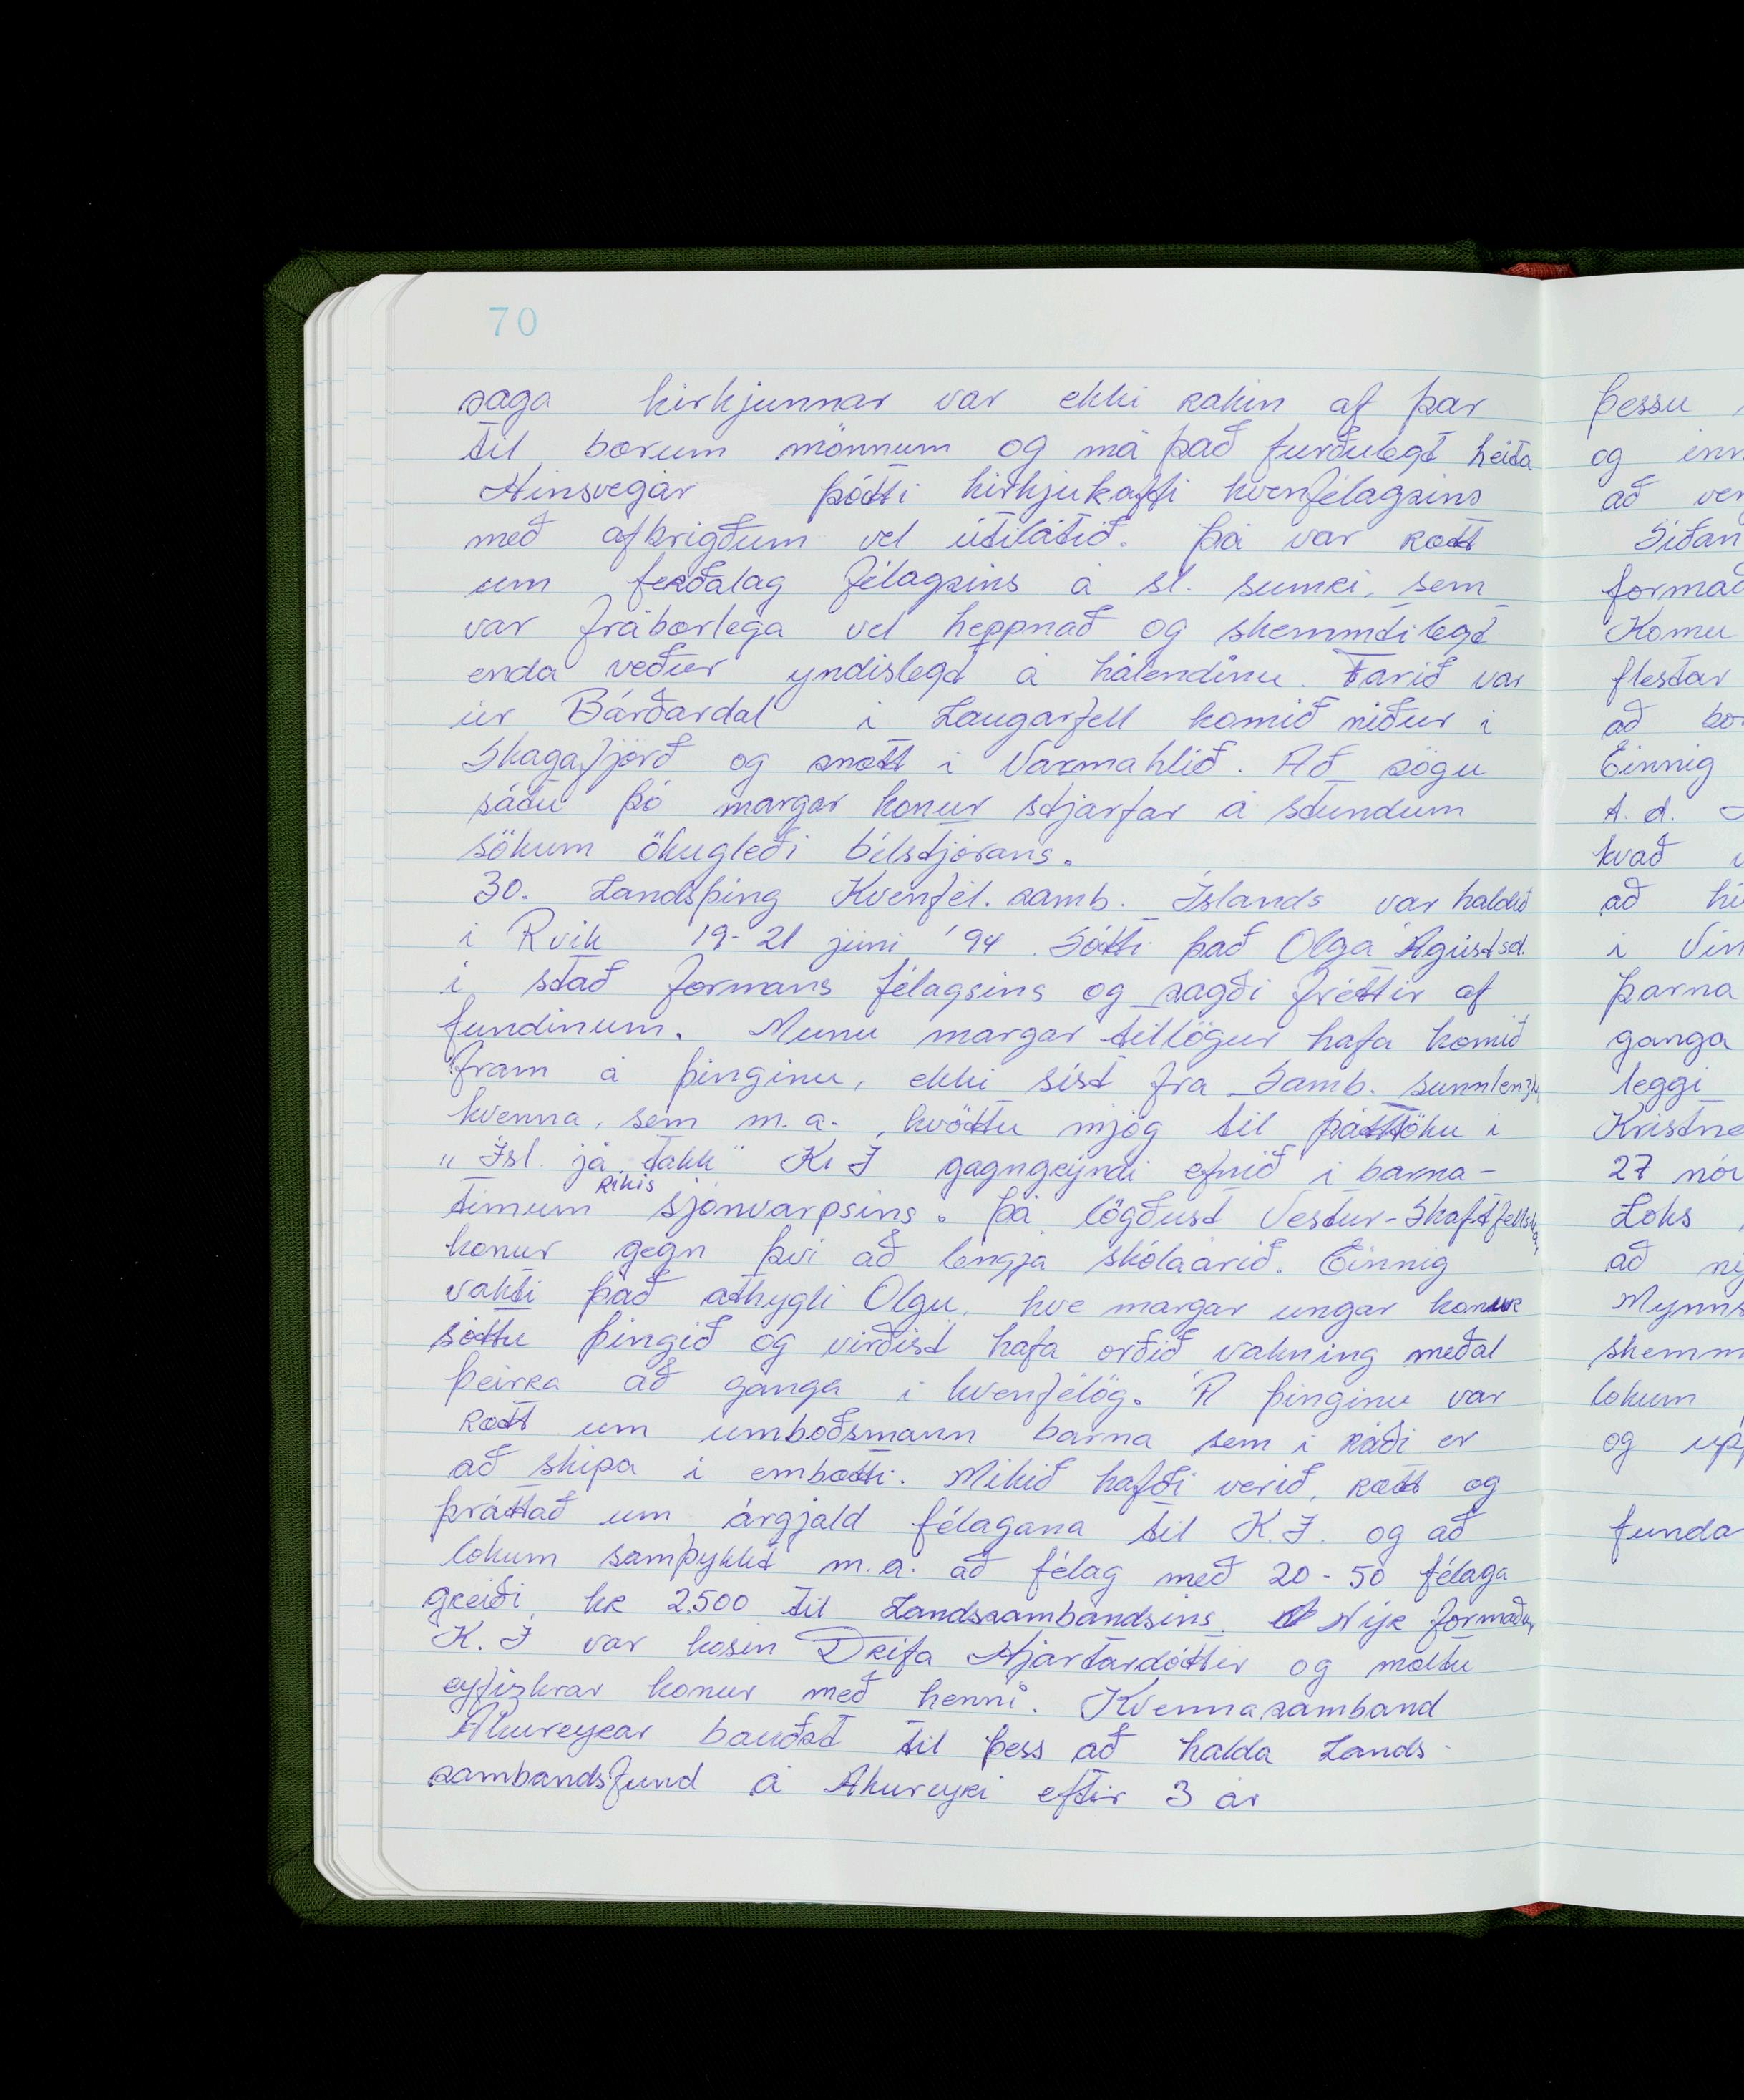 70
saga kirkjunnar var ekki rakin af þar
til bærum mönnum og má það furðulegt heita
Hinsvegar þótti kirkjukaffi kvenfélagsins
með afbrigðum vel útilátið. Þá var rætt
um ferðalag félagsins á sl. sumri, sem
var frábærlega vel heppnað og skemmtilegt
enda veður yndislegt á hálendinu. Farið var
úr Bárðardal í Laugarfell komið niður í
Skagafjörð og snætt í Varmahlíð. Að sögu
sátu þó margar konur stjarfar á stundum
sökum ökugleði bílstjórans.
30. Landsþing Kvenfél. samb. Íslands var haldið
í Rvík 19-21 júní '94. Sótti það Olga Ágústsd.
í stað formans félagsins og sagði fréttir af
fundinum. Munu margar tillögur hafa komið
fram á þinginu, ekki síst frá Samb. sunnlenzk
kvenna, sem m.a. hvöttu mjög til þátttöku í
„Ísl. já takk" K.Í gagngeyndi efnið í barna-
tímum ríkis sjónvarpsins. Þá lögðust Vestur-Skaftfellskar
konur gegn því að lengja skólaárið. Einnig
vakti það athygli Olgu, hve margar ungar konur
sóttu þingið og virðist hafa orðið vakning meðal
þeirra að ganga í kvenfélög. Á þinginu var
rætt um umboðsmann barna sem í ráði er
að skipa í embætti. Mikið hafði verið rætt og
þráttað um árgjald félagana til K.Í. og að
lokum samþykkt m.a. að félag með 20-50 félaga
greiði kr 2.500 til Landssambandsins. Nýr formaður
K.Í var kosin Drífa Hjartardóttir og mæltu
eyfizkrar konur með henni. Kvennasamband
Akureyrar bauðst til þess að halda Lands-
sambandsfund á Akureyri eftir 3 ár
þessu
og inn
að ver
Síðan
formað
Komu
flestar
að bo
Einnig
t.d.
kvað
að
í Vín
þarna
ganga
leggi
Kristne
27 nóv
Loks
að ný
Mynns
skemm
lokum
og upp
funda